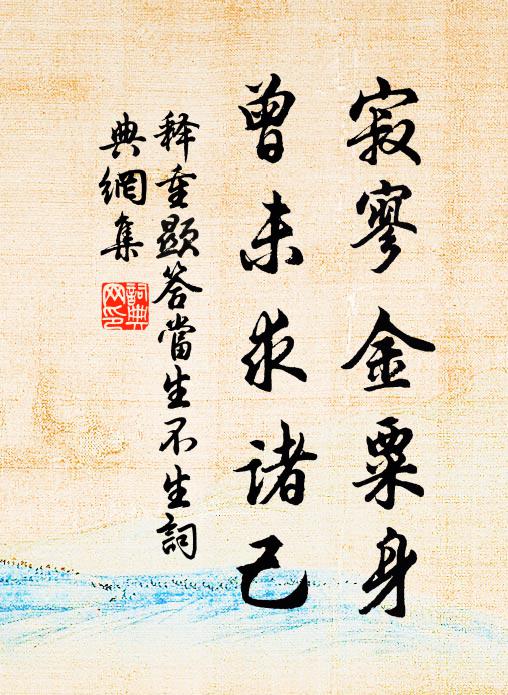 寂寥金粟身
曾未求诸己
释重顯答當生不生詞
典網集
詞典网印